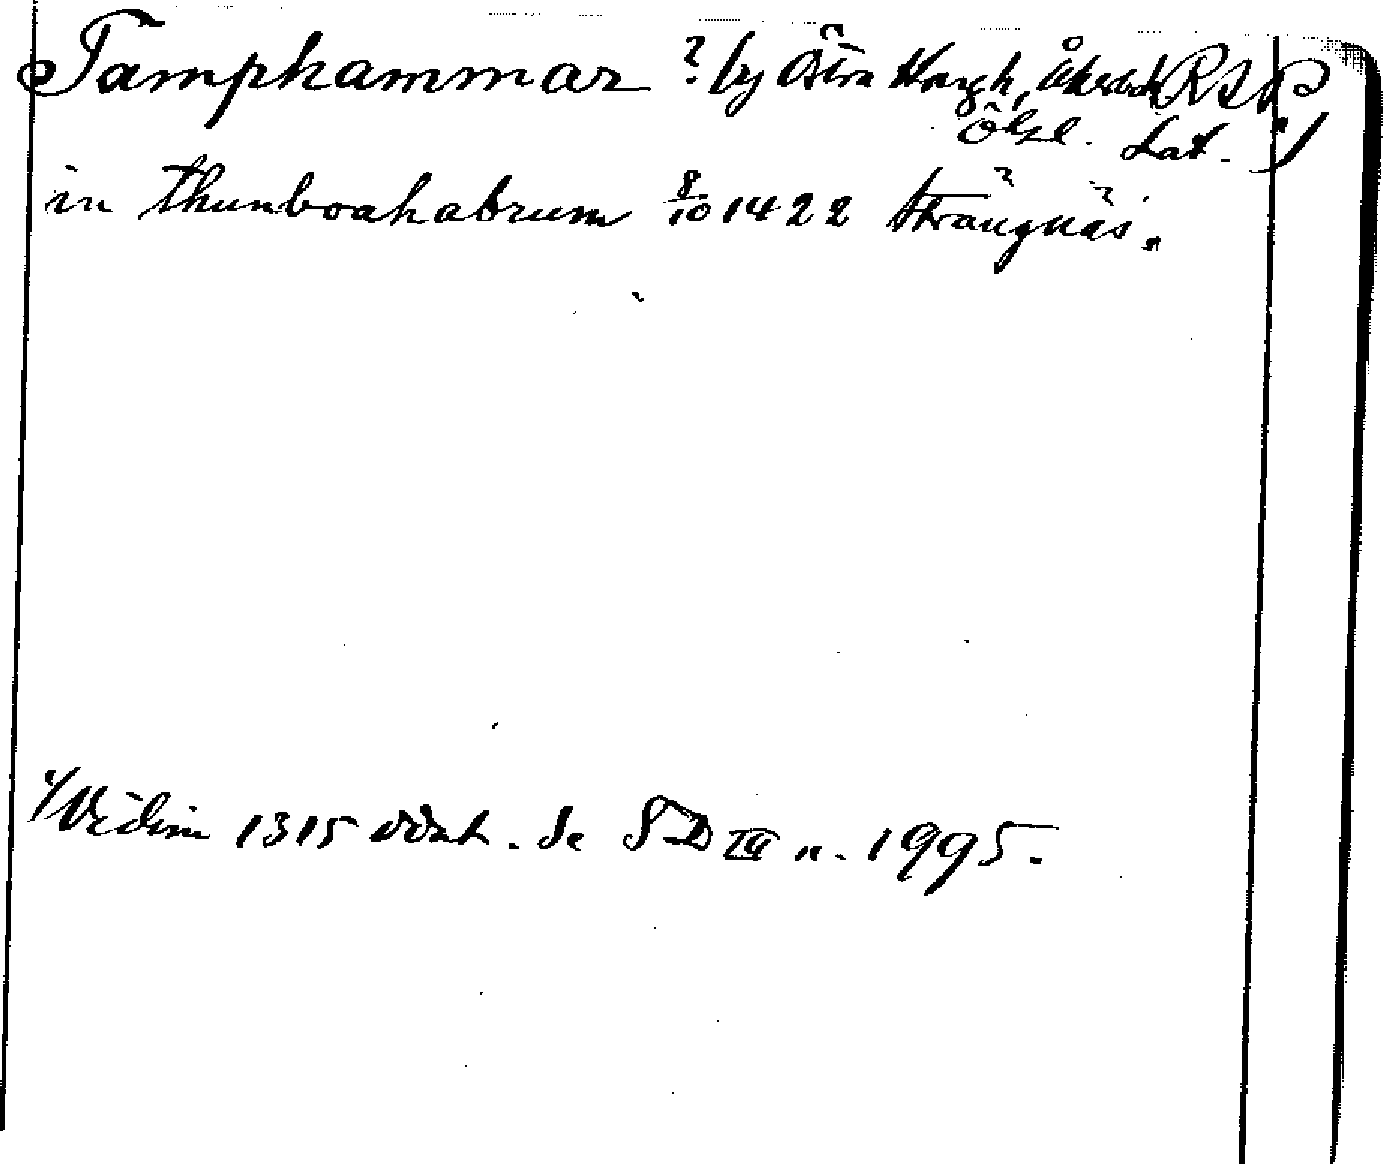 Tamphammar ? by Östra Harg h, Åkerbo h RAP
Ötgl. Lat. 1)
in thunboahabrum 8/10 1422 Strängnäs.
1/ Vidim 1315 odat. Se SD III n. 1995.